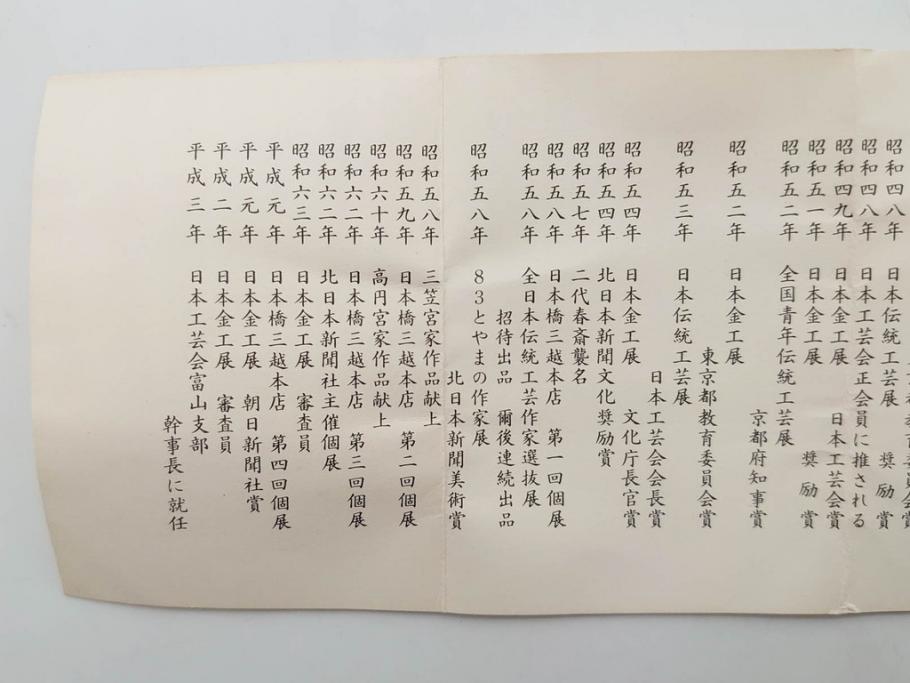 昭和四八年 日本伝統工芸展 奨励賞
昭和四八年 日本工芸会正会員に推される
昭和四九年 日本金工展 日本工芸会賞
昭和五一年 日本金工展 奨励賞
昭和五二年 全国青年伝統工芸展
京都府知事賞
昭和五二年 日本金工展
東京都教育委員会賞
昭和五三年 日本伝統工芸展
日本工芸会会長賞
昭和五四年 日本金工展 文化庁長官賞
昭和五四年 北日本新聞文化奨励賞
昭和五七年 二代春斎襲名
昭和五八年 日本橋三越本店 第一回個展
昭和五八年 全日本伝統工芸作家選抜展
招待出品 爾後連続出品
昭和五八年 83とやまの作家展
北日本新聞美術賞
昭和五八年 三笠宮家作品献上
昭和五九年 日本橋三越本店 第二回個展
昭和六十年 高円宮家作品献上
昭和六二年 日本橋三越本店 第三回個展
昭和六二年 北日本新聞社主催個展
昭和六三年 日本金工展 審査員
平成元年 日本橋三越本店 第四回個展
平成元年 日本金工展 朝日新聞社賞
平成二年 日本金工展 審査員
平成三年 日本工芸会富山支部
幹事長に就任